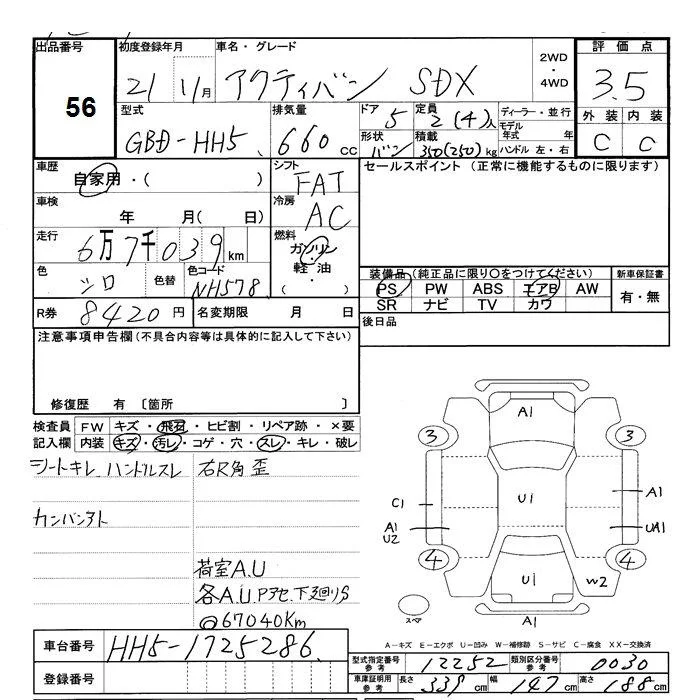 出品番号 初度登録年月 車名・グレード 2WD・4WD 評価点
56 21 11月 アクティバン SDX 3.5
型式 排気量 ドア 5 定員 2(4)人 ディーラー・並行 外装 内装
GBD-HH5 660cc 形状 バン 積載 350(250)kg モデル年式 年 C C
ハンドル 左・右
車歴 シフト セールスポイント(正常に機能するものに限ります)
自家用・( ) FAT
車検 冷房
年 月( 日) AC
走行 燃料
6万7千039km ガソリン・軽油・( )
色 色替 色コード 装備品(純正品に限り○をつけてください) 新車保証書
シロ NH578 PS PW ABS エアB AW 有・無
SR ナビ TV カワ
R券 8420円 名変期限 月 日 後日品
注意事項申告欄(不具合内容等は具体的に記入して下さい)
修復歴 有 〔箇所 〕
検査員 FW キズ・飛石・ヒビ割・リペア跡・×要
記入欄 内装 キズ・汚レ・コゲ・穴・スレ・キレ・破レ
シートキレ ハンドルスレ 右R角歪
カンバンアト
荷室A.U
各A.U.Pアセ.下廻りS
◎67040Km
A1
3 3
C1 U1 A1
A1 UA1
U2
4 4
U1 W2
スペア A1
A-キズ E-エクボ U-凹み W-補修跡 S-サビ C-腐食 XX-交換済
車台番号 HH5-1725286
登録番号
型式指定番号 参考 12252 類別区分番号 参考 0030
車庫証明用 参考 長さ 339cm 幅 147cm 高さ 188cm